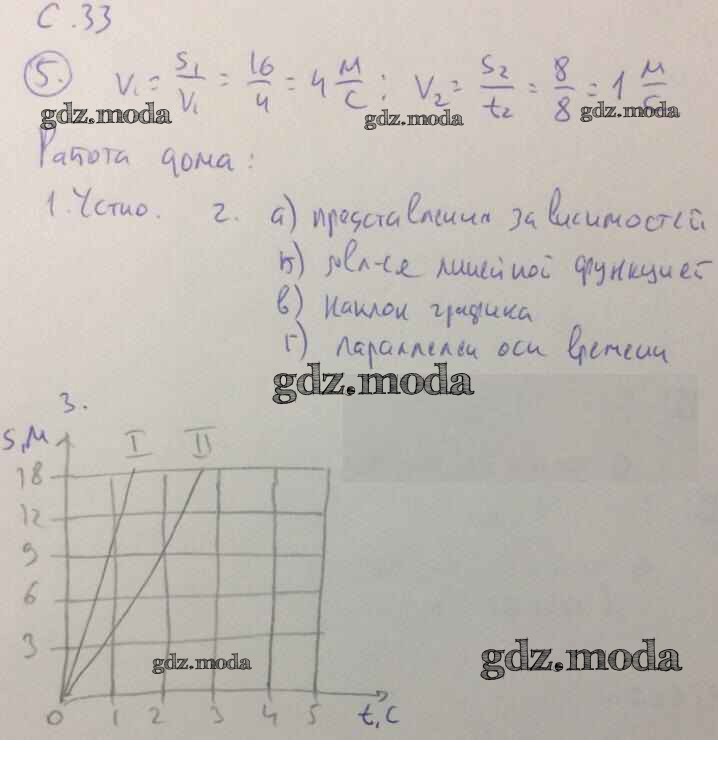 С.33
5. V₁ = S₁/V₁ = 16/4 = 4 м/с; V₂ = S₂/t₂ = 8/8 = 1 м/с
gdz.moda gdz.moda gdz.moda
Работа дома:
1. Устно. 2. а) представления зависимостей
б) явл-ся линейной функцией
в) наклон графика
г) параллелен оси времени
gdz.moda
3.
S,м I II
18
12
9
6
3
gdz.moda gdz.moda
0 1 2 3 4 5 t,с